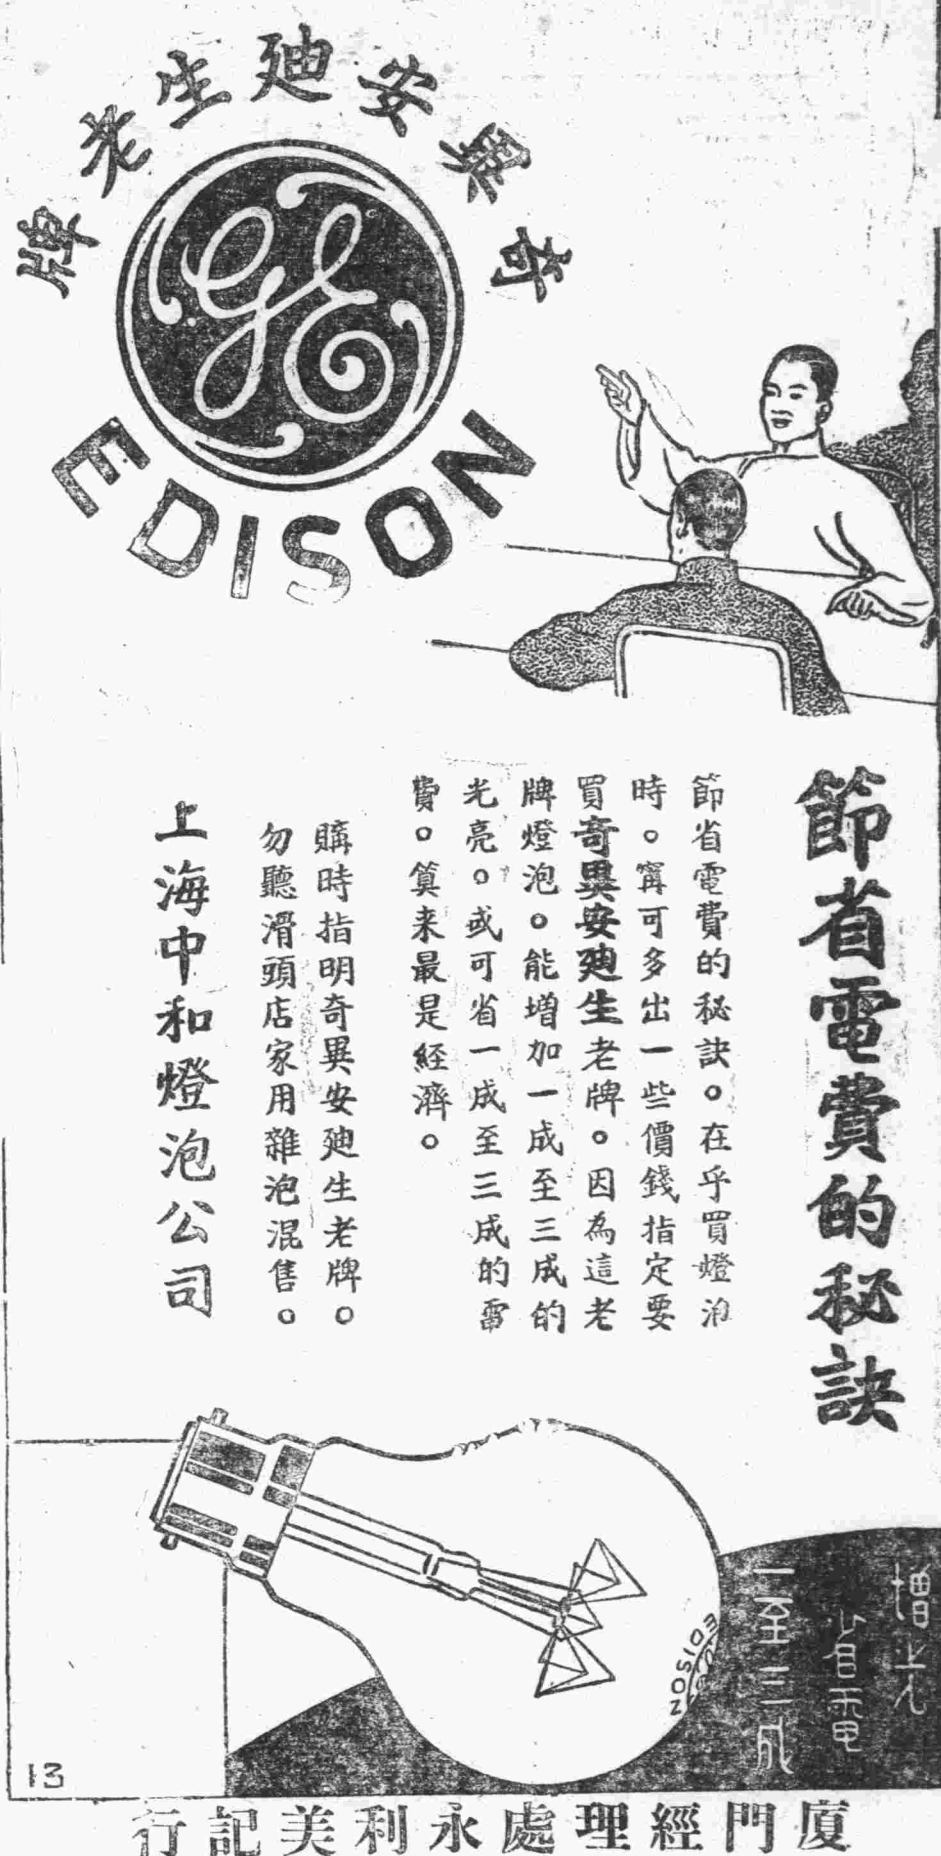 奇異安廸生老牌
GE
EDISON
節省電費的秘訣
節省電費的秘訣。在乎買燈泡
時。寗可多出一些價錢指定要
買奇異安廸生老牌。因為這老
牌燈泡。能增加一成至三成的
光亮。或可省一成至三成的電
費。算来最是經濟。
購時指明奇異安廸生老牌。
勿聽滑頭店家用雜泡混售。
上海中和燈泡公司
增光
省電
一至三成
EDISON
13
廈門經理處永利美記行